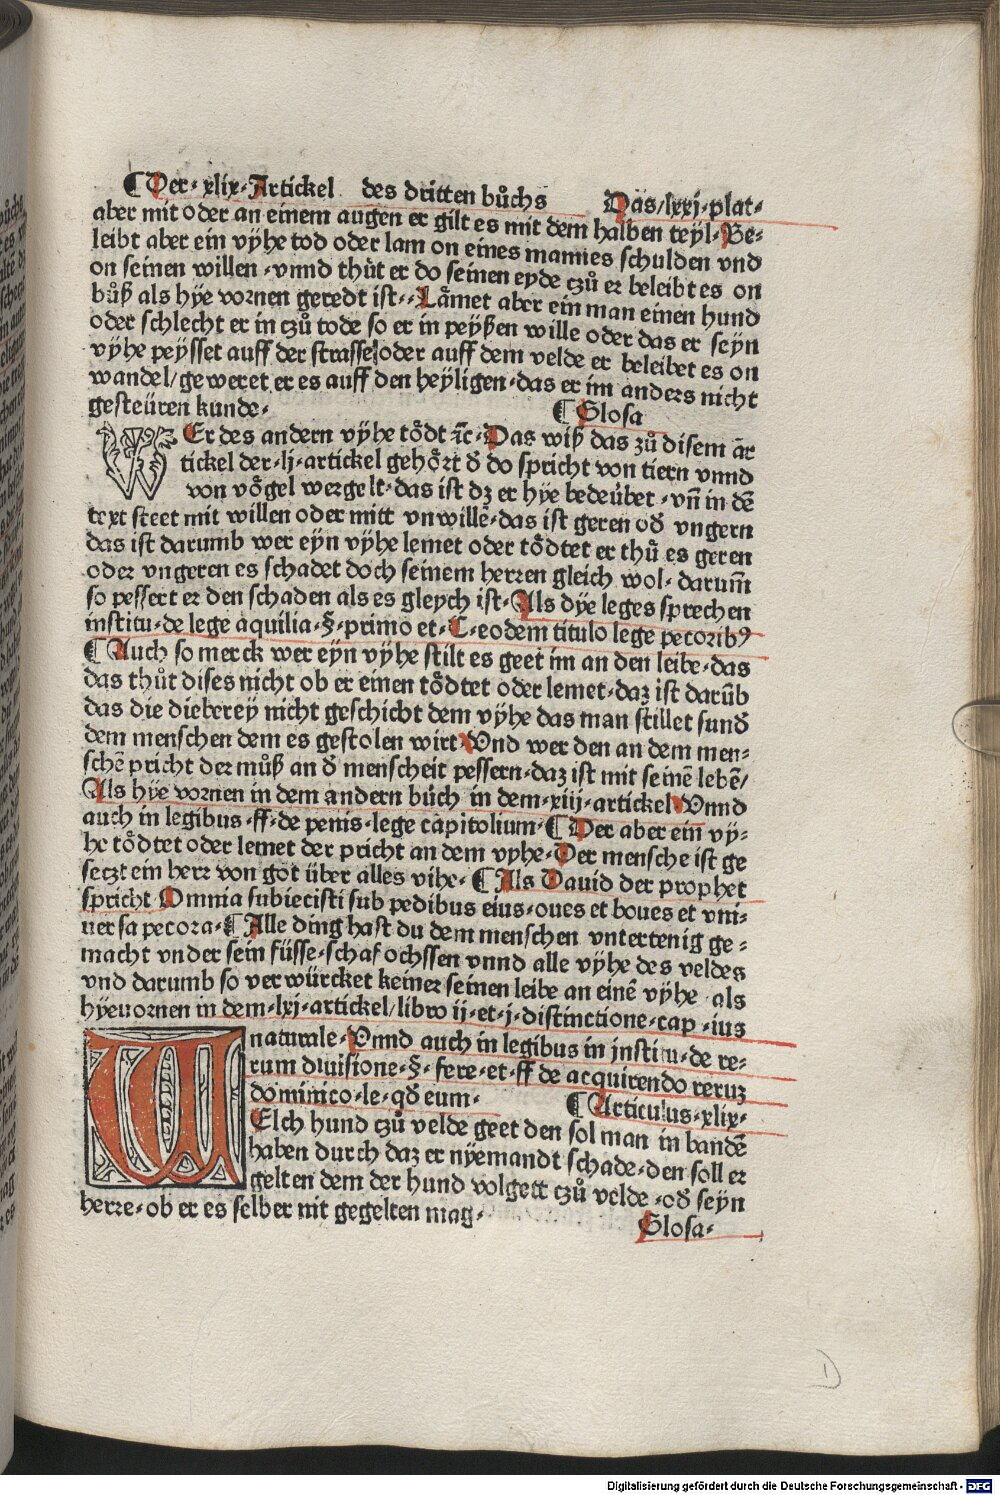 ¶Der·xlix·Artickel des dritten bůchs Das/lxxj·plat·
aber mit oder an einem augen er gilt es mit dem halben teyl·Be⸗
leibt aber ein vÿhe tod oder lam on eines mannes schulden vnd
on seinen willen·vnnd thůt er do seinen eyde czů er beleibt es on
bůß als hÿe vornen geredt ist··Låmet aber ein man einen hund
oder schlecht er in czů tode so er in peÿßen wille oder das er seÿn
vÿhe peÿsset auff der strasse/oder auff dem velde er beleibet es on
wandel/geweret er es auff den heÿligen·das er im anders nicht
gesteüren kunde· ¶Glosa
WEr des andern vÿhe tödt ꝛc̄·Das wiß das zů disem ar̄
tickel der·lj·artickel gehört ď do spricht von tiern vnnd
von vögel wergelt·das ist dz er hÿe bedeübet·vn̄ in dē
text steet mit willen oder mitt vnwillē·das ist geren oď vngern
das ist darumb wer eÿn vÿhe lemet oder tödtet er thů es geren
oder vngeren es schadet doch seinem herren gleich wol·darum̄
so pessert er den schaden als es gleych ist·Als dÿe leges sprechen
institu·de lege aquilia·§·primo et·C·eodem titulo lege pecoribꝰ
¶Auch so merck wer eÿn vÿhe stilt es geet im an den leibe·das
das thůt dises nicht ob er einen tödtet oder lemet·daz ist darūb
das die dieberey nicht geschicht dem vÿhe das man stillet sunď
dem menschen dem es gestolen wirt·Vnd wer den an dem men⸗
schē pricht der můß an ď menscheit pessern·daz ist mit seinē lebē/
Als hÿe vornen in dem andern bůch in dem·xiij·artickel·Vnnd
auch in legibus·ff·de penis·lege capitolium·¶Der aber ein vÿ⸗
he tödtet oder lemet der pricht an dem vyhe·Der mensche ist ge
seczt ein herr von got über alles vihe·¶Als Dauid der prophet
spricht Omnia subiecisti sub pedibus eius·oues et boues et vni⸗
uersa pecora·¶Alle ding hast du dem menschen vntertenig ge⸗
macht vnder sein füsse·schaf ochssen vnnd alle vÿhe des veldes
vnd darumb so verwürcket keiner seinen leibe an einē vÿhe als
hÿeuornen in dem·lxj·artickel/libro ij·et·j·distinctione·cap·ius
naturale·Vnnd auch in legibus in institu·de re⸗
rum diuisione·§·fere·et·ff de acquirendo reruz
dominico·le·qď eum· ¶Articulus·xlix·
WElch hund czů velde geet den sol man in bandē
haben durch daz er nÿemandt schade·den soll er
gelten dem der hund volgett czů velde·oď seÿn
herre·ob er es selber nit gegelten mag· Glosa·
D
Digitalisierung gefördert durch die Deutsche Forschungsgemeinschaft - DFG